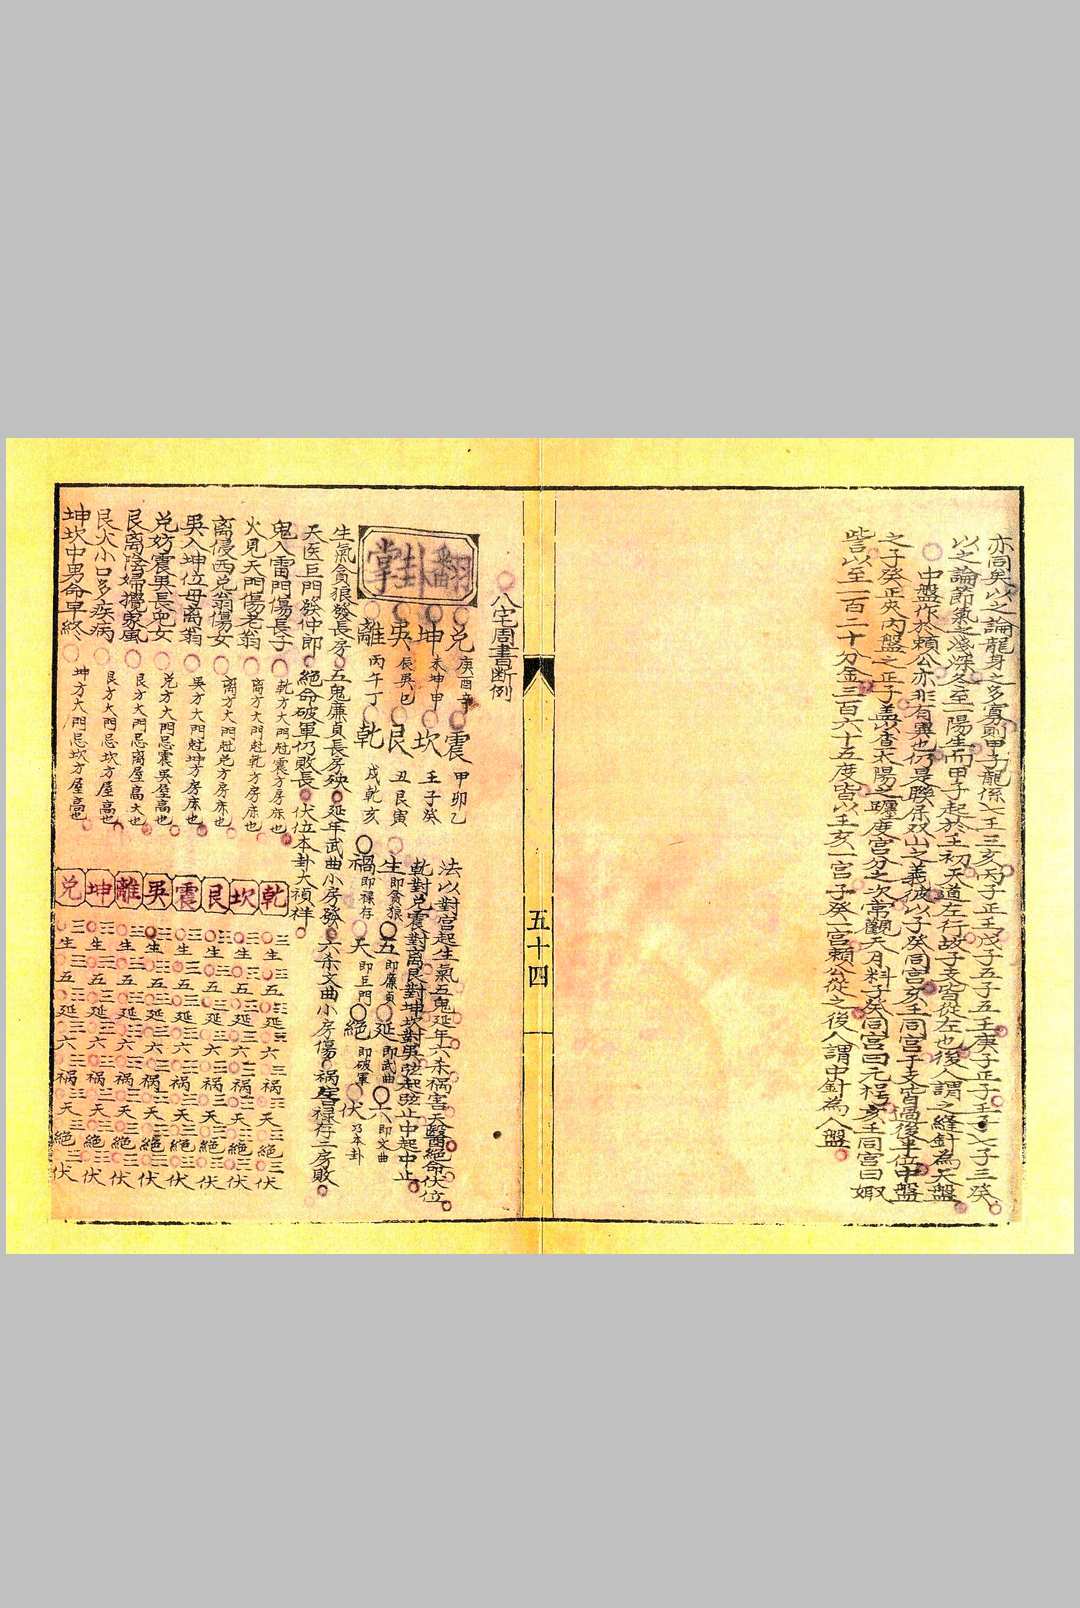 亦同矣以之論龍身之多寡則甲子龍係七壬三亥丙子正壬戊子五子五壬庚子正子壬子七子三癸
以之論節氣之淺深冬至一陽生而甲子起於壬初天道左行故子支皆從左也後人謂之縫針為天盤
中盤作於賴公亦非有異也仍是聯保双山之義彼以子癸同宮亥壬同宮子支皆過後半位中盤
之子癸正夾內盤之正子蓋以查太陽之躔度宮分之次常觀天月料子癸同宮曰元枵亥壬同宮曰娵
訾以至一百二十分金三百六十五度皆以壬亥一宮子癸一宮賴公從之後人謂中針為人盤
五十四
八宅周書斷例
翻卦掌
兌 庚酉辛 震 甲卯乙
坤 未坤申 坎 壬子癸
巽 辰巽巳 艮 丑艮寅
離 丙午丁 乾 戌乾亥
法以對宮起生氣五鬼延年六杀禍害天醫絕命伏位
乾對兌震對离艮對坤坎對巽弦起弦止中起中止
生 即貪狼 五 即廉貞 延 即武曲 六 即文曲
禍 即祿存 天 即巨門 絕 即破軍 伏 乃本卦
生氣貪狼發長房 五鬼廉貞長房殃 延年武曲小房發 六杀文曲小房傷 禍害祿存二房敗
天医巨門發仲郎 絕命破軍仍敗長 伏位本卦大禎祥
鬼入雷門傷長子 乾方大門尅震方房床也
火見天門傷老翁 离方大門尅乾方房床也
离侵西兌翁傷女 离方大門尅兌方房床也
巽入坤位母离翁 巽方大門尅坤方房床也
兌妨震巽長兒女 兌方大門忌震巽屋高也
艮离陰婦攪家風 艮方大門忌离屋高大也
艮坎小口多疾病 艮方大門忌坎方屋高也
坤坎中男命早終 坤方大門忌坎方屋高也
乾 坎 艮 震 巽 離 坤 兌
生 五 延 六 禍 天 絕 伏
生 五 延 六 禍 天 絕 伏
生 五 延 六 禍 天 絕 伏
生 五 延 六 禍 天 絕 伏
生 五 延 六 禍 天 絕 伏
生 五 延 六 禍 天 絕 伏
生 五 延 六 禍 天 絕 伏
生 五 延 六 禍 天 絕 伏